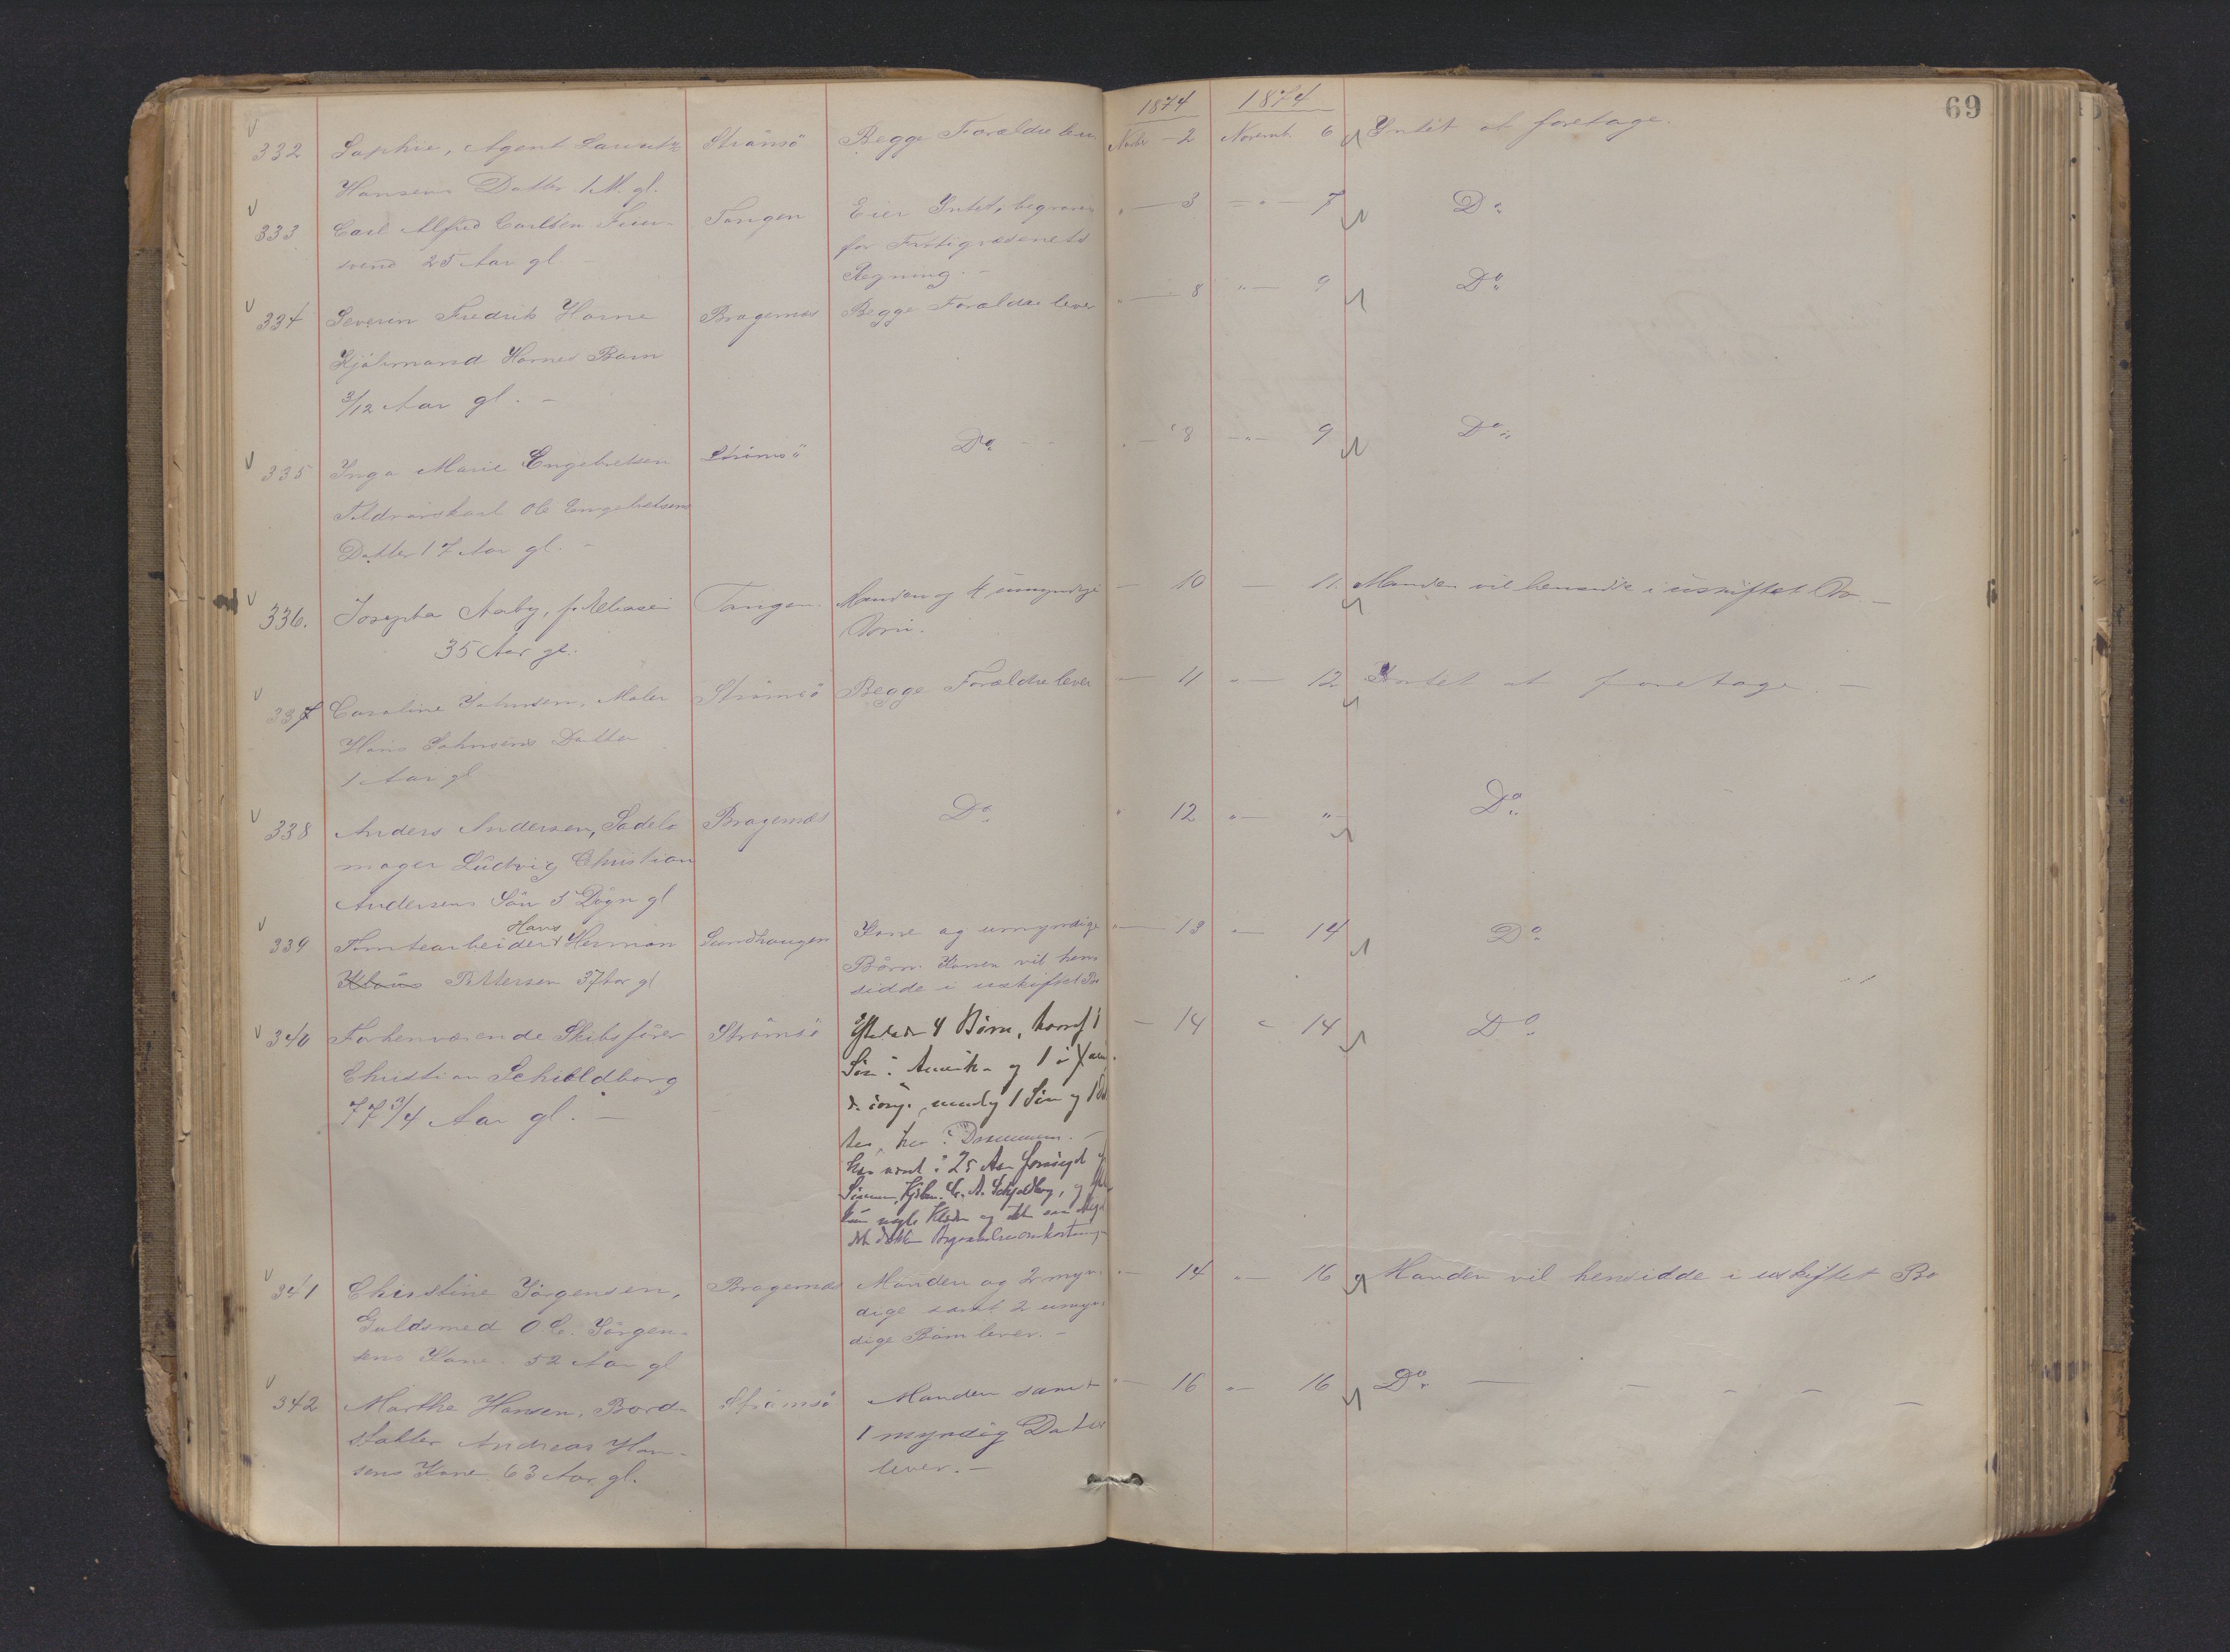 69
1874 1874
332 Sophie, Agent Lauritz Strömsö Begge Forældre lever Novbr - 2 Novemb. 6 Intet at foretage.
Hansens Datter 1 M. gl.
333 Carl Alfred Carlsen Tangen Eier Intet, begraves " — 3 — " — 7 Do
svend 25 Aar gl. –
for Fattigvæsenets
Regning. –
334 Severin Fredrik Horne Bragernæs Begge Forældre lever " — 8 " — 9 Do
Hornes Barn
3/12 Aar gl. –
335 Inga Marie Engebretsen Strömsö Do " — 8 — " — 9 Do
Ole Engebretsens
Datter 17 Aar gl. –
336. Josepha Aaby, f. Tangen. Manden og 4 umyndige — 10 — 11. Manden vil hensidde i uskiftet Bo –
35 Aar gl. Börn.
337 Caroline Johnsen, Maler Strömsö Begge Forældre lever — 11 " — 12 Intet at foretage. –
Hans Johnsens Datter
1 Aar gl
338 Anders Andersen, Sadel- Bragernæs Do " 12 " — " – Do
mager Ludvig Christian
Andersens Sön 5 Dögn gl
339 Tomtearbeider Hans Herman Sundhaugen Kone og umyndige " — 13 " — 14 Do
Pettersen 37 Aar gl
Börn. Konen vil hen-
sidde i uskiftet Bo
340 Forhenværende Skibsförer Strömsö Efterlader 4 Börn, hvoraf 1 — 14 " 14 Do
Christian Schieldborg Sön i Amerika og 1 i
77 3/4 Aar gl. – 1 Sön og 1 Dat
ter, her i Drammen. –
har været i 25 Aar forsörget af
Sönnen, og
nogle Klæder og
341 Christine Jörgensen, Bragernæs Manden og 2 myn- " — 14 " — 16 Manden vil hensidde i uskiftet Bo
Guldsmed O. C. Jörgen- dige samt 2 umyn-
sens Kone. 52 Aar gl dige Börn lever. –
342 Marthe Hansen, Bord- Strömsö Manden samt " — 16 " — 16 Do — – – –
stabler Andreas Han- 1 myndig Datter
sens Kone. 63 Aar gl. lever. –